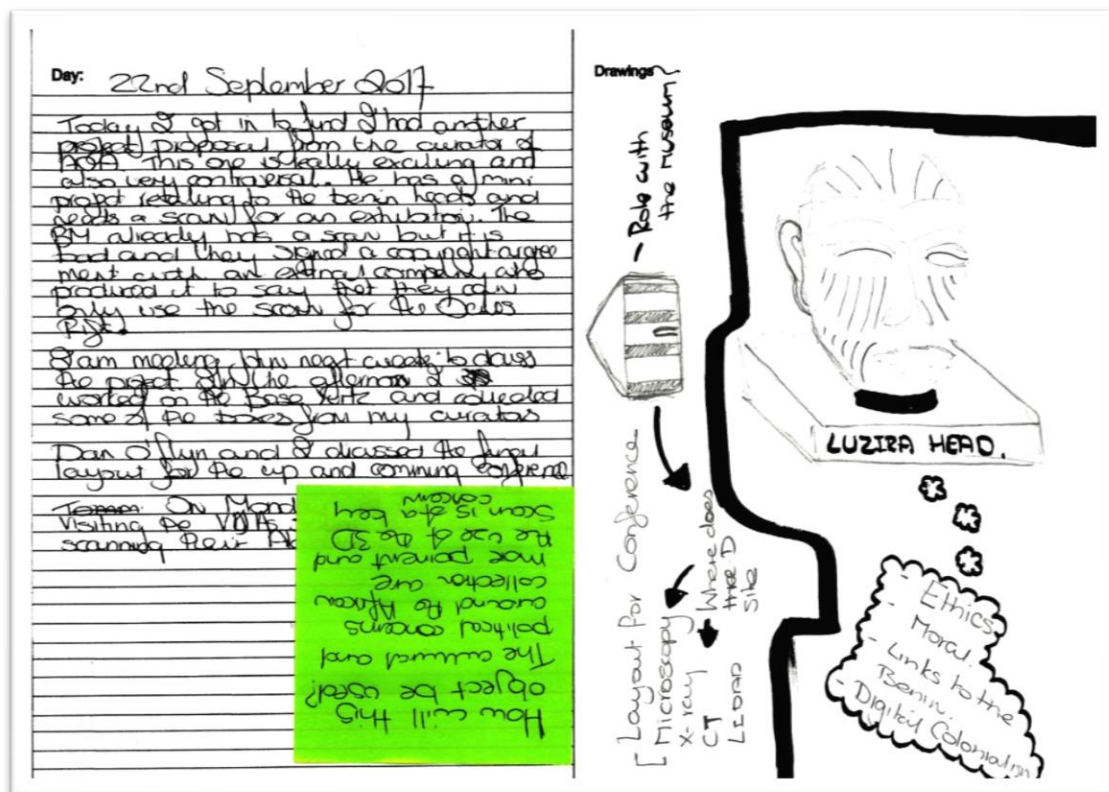 Day: 22nd September 2017
Today I got in to find I had another
project proposal from the curator of
AOA. This one is really exciting and
also very controversal. He has a mini
project relating to the benin heads and
needs a scan for an exhibition. The
BM already has a scan but it is
bad and they signed a copyright agree
ment with an external company who
produced it to say that they can
only use the scan for the Oculus
Rift.
I am meeting him next week to discuss
the project. In the afternoon I
worked on the Base and collected
some of the boxes from my curators
Dan O'Flynn and I discussed the
layout for the up and comming conference
On Mond
Visiting the V&As
scanning their
How will this
object be used?
The cultural and
political concerns
around the African
collection are
more poinent and
the use of the 3D
Scan is of a key
concern
Drawings
- Role with
the museum
[ Layout for Conference
Microscopy
X-ray
CT
Where does
the 3D
sit
LUZIRA HEAD.
- Ethics
- Moral.
- Links to the
Benin.
- Digital Colonialism